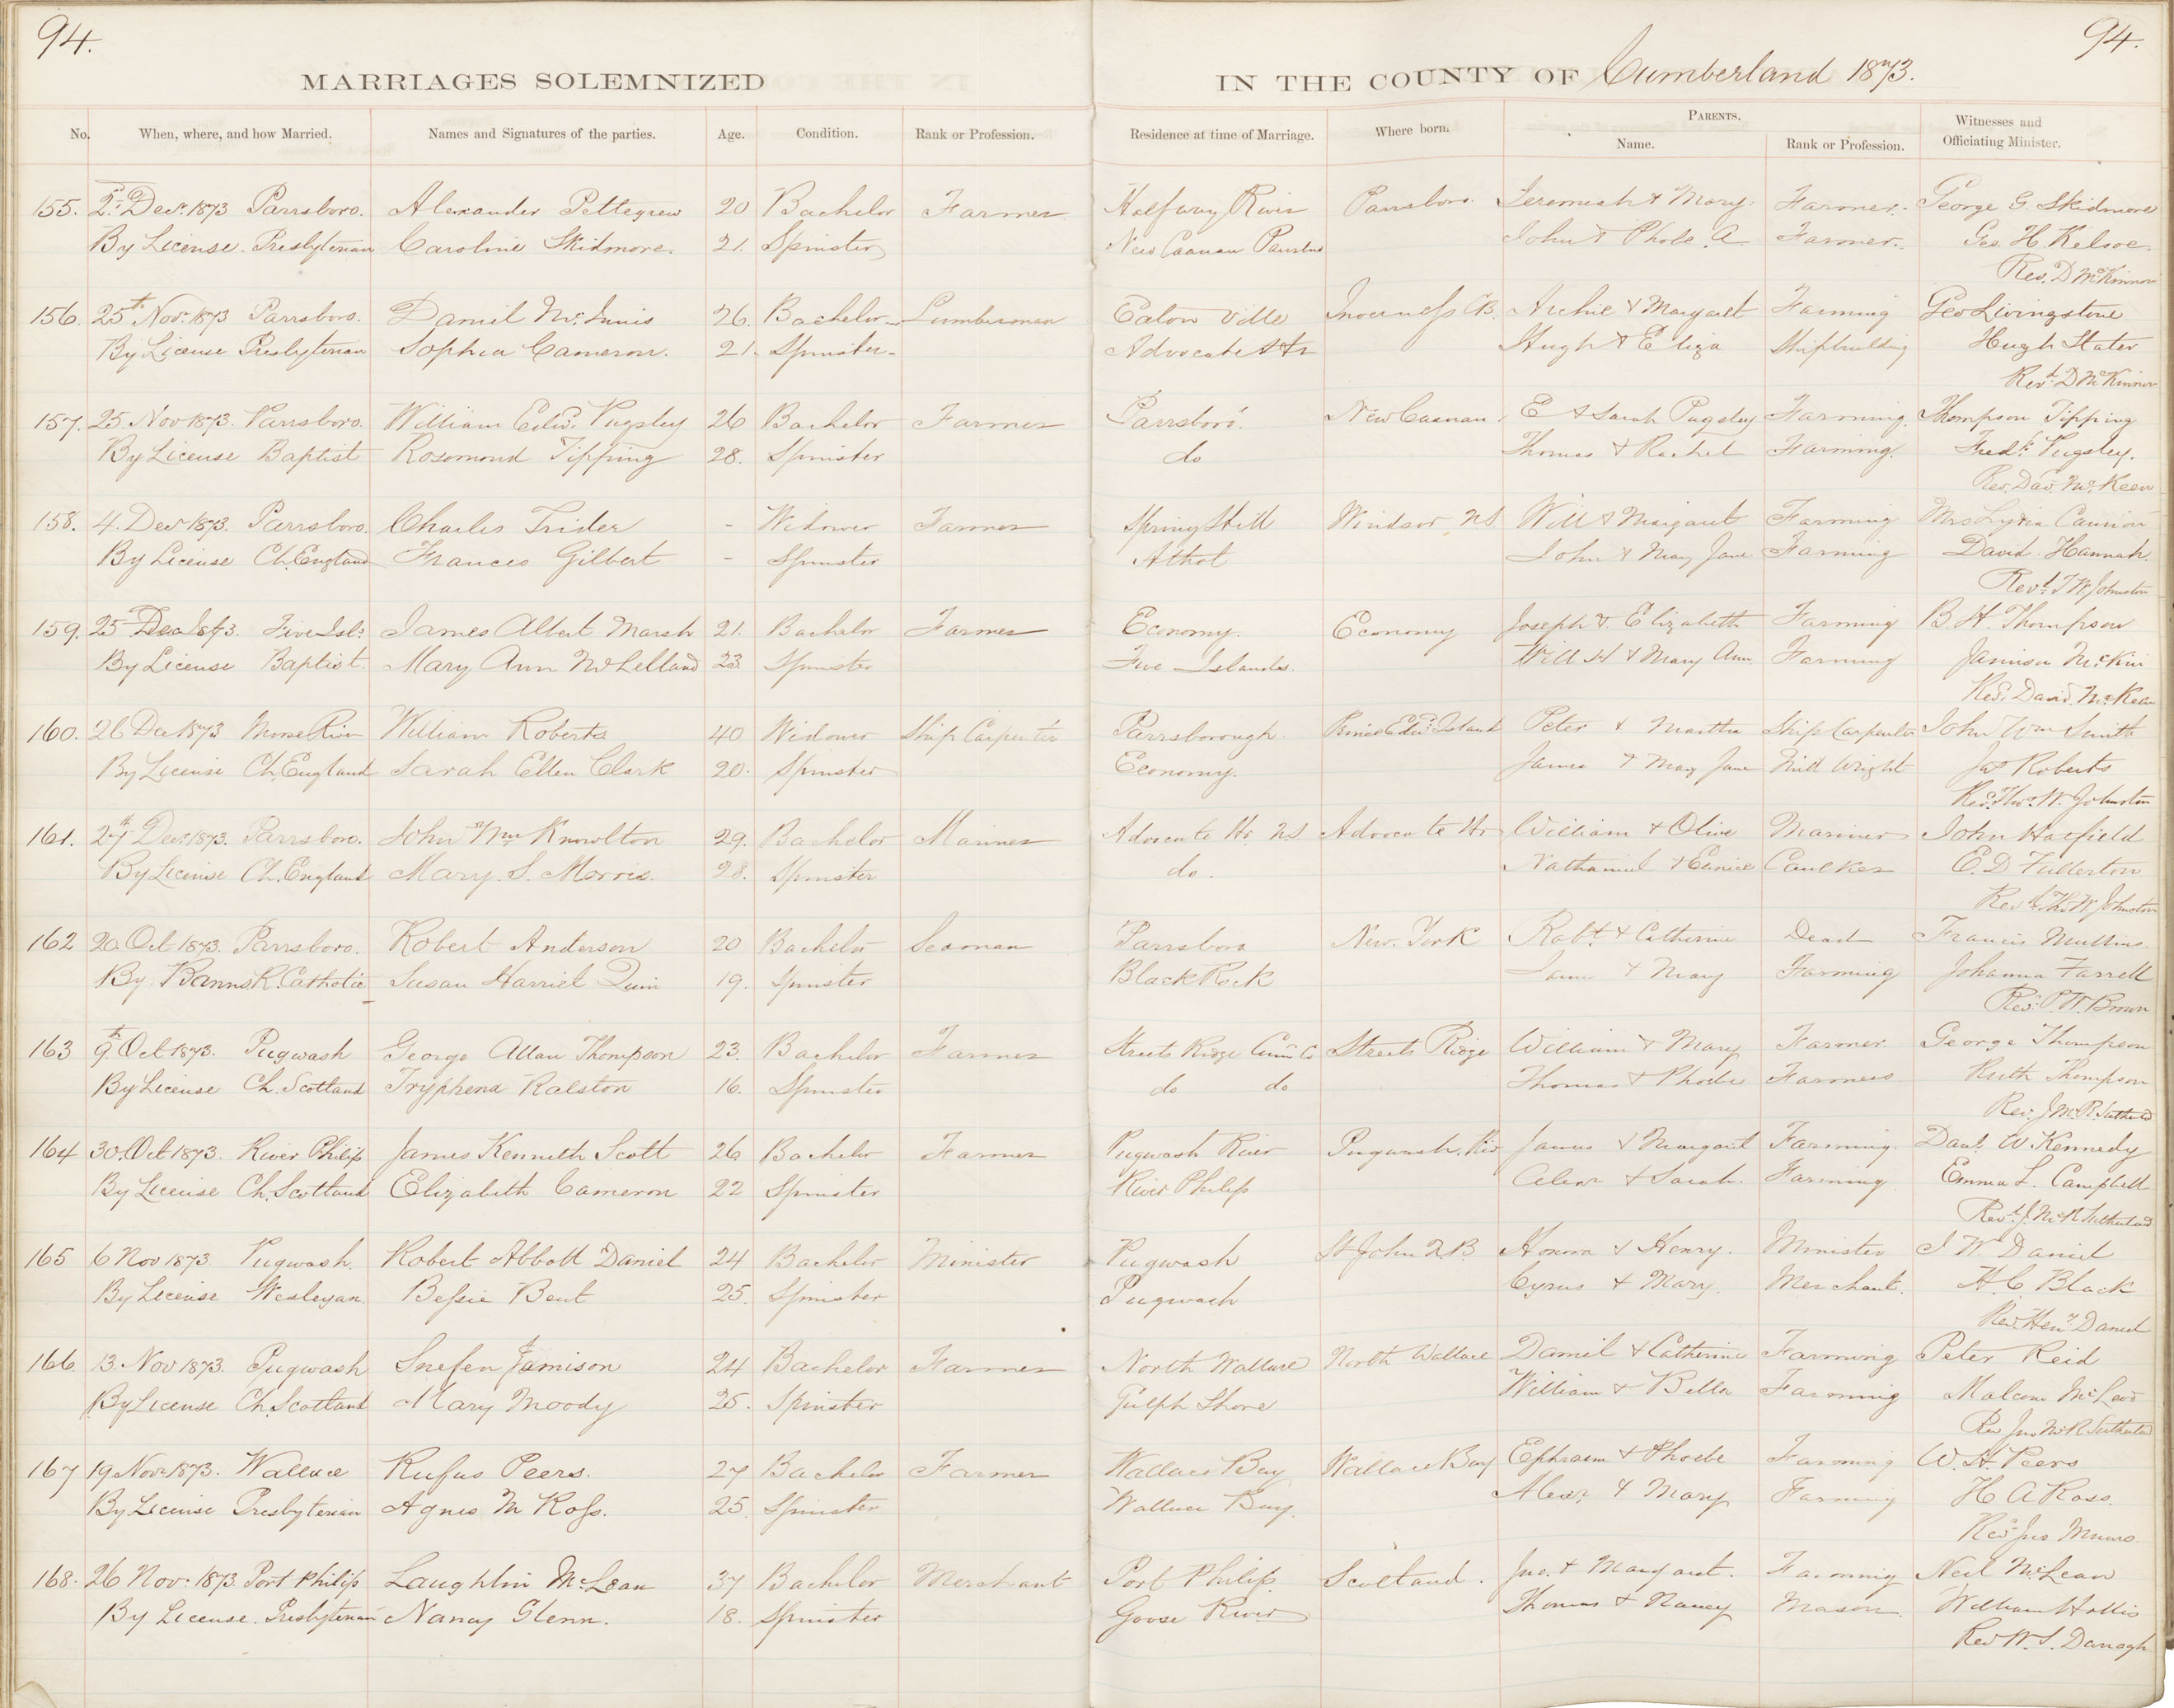 94.
94.
MARRIAGES SOLEMNIZED IN THE COUNTY OF Cumberland 1873.
No. When, where, and how Married. Names and Signatures of the parties. Age. Condition. Rank or Profession. Residence at time of Marriage. Where born. PARENTS. Name. Rank or Profession. Witnesses and Officiating Minister.
155. 2d Decr. 1873 Parrsboro. Alexander Pettegrew 20 Bachelor Farmer Halfway River Parrsboro. Jeremiah & Mary. Farmer. George G. Skidmore
By License. Presbyterian Caroline Skidmore. 21. Spinster New Caanan Parrsboro John & Phobe A Farmer. Geo. H. Kelsoe.
Rev. D McKinnon
156. 25th Novr. 1873 Parrsboro. Daniel McInnis 26. Bachelor Lumberman Eaton Ville Inverness CB. Archie & Margaret Farming Geo Livingstone
By License Presbyterian Sophia Cameron. 21. Spinster Advocate Hr Hugh & Eliza Shipbuilding Hugh Stater
Revd. D McKinnon
157. 25 Nov 1873. Parrsboro. William Edwd. Pugsley 26 Bachelor Farmer Parrsboro. New Caanan E & Sarah Pugsley Farming. Thompson Tipping
By License Baptist Rosomond Tipping 28. Spinster do Thomas & Rachel Farming. Fredk. Pugsley.
Rev. Davd. McKeen
158. 4. Decr 1873. Parrsboro. Charles Trider - Widower Farmer Spring Hill Windsor NS Will & Margaret Farming Mrs Lydia Cannon
By License Ch. England Frances Gilbert - Spinster Athol John & Mary Jane Farming David Hannah.
Revd. T W Johnston
159. 25 Dec 1873. Five Isls. James Albert Marsh 21. Bachelor Farmer Economy. Economy Joseph & Elizabeth Farming B. H. Thompson
By License Baptist. Mary Ann McLelland 23 Spinster Five Islands. Will H & Mary Ann Farming Jamison McKim
Revd. David McKeen
160. 26 Dec 1873 Moose River William Roberts 40 Widower Ship Carpenter Parrsborough. Prince Edwd. Island Peter & Martha Ship Carpenter John Wm Smith
By License Ch. England Sarah Ellen Clark 20. Spinster Economy. James & Mary Jane Mill Wright Jas Roberts
Revd. Thos. W. Johnston
161. 27th Decr. 1873. Parrsboro. John Wm Knowlton 29. Bachelor Mariner Advocate Hr. NS Advocate Hr William & Olive Mariner John Hatfield
By License Ch. England Mary. S. Morris. 28. Spinster do. Nathaniel & Eunice Caulker E. D Fullerton
Revd. Thos W Johnston
162 20 Oct 1873. Parrsboro. Robert Anderson 20 Bachelor Seaman Parrsboro New York Robt. & Catherine Dead Francis Mullins.
By Banns R. Catholic Susan Harriet Quin 19. Spinster Black Rock & Mary Farming Johanna Farrell
Revd. P. W. Brown
163 9th Oct 1873. Pugwash George Allan Thompson 23. Bachelor Farmer Streets Ridge Cum Co Streets Ridge William & Mary Farmer George Thompson
By License Ch. Scotland Tryphena Ralston 16. Spinster do do Thomas & Phoebe Farmers Ruth Thompson
Rev. J McR. Sutherland
164 30. Oct 1873. River Philip James Kenneth Scott 26 Bachelor Farmer Pugwash River Pugwash. Riv James & Margaret Farming. Danl. W. Kennedy
By License Ch. Scotland Elizabeth Cameron 22 Spinster River Philip Alexr & Sarah. Farming Emma L. Campbell
Revd. J. McR Sutherland
165 6 Nov 1873. Pugwash. Robert Abbott Daniel 24 Bachelor Minister Pugwash St John N.B. Honora & Henry. Minister J W Daniel
By License Wesleyan. Bessie Bent 25. Spinster Pugwash Cyrus & Mary. Merchant. H. C. Black
Rev. Heny Daniel
166. 13. Nov 1873. Pugwash Snefen Jamison 24 Bachelor Farmer North Wallace North Wallace Daniel & Catherine Farming Peter Reid
By License Ch. Scotland Mary Moody 25. Spinster Gulph Shore William & Bella Farming Malcom McLeod
Rev Jno McR Sutherland
167 19 Novr 1873. Wallace Rufus Peers. 27 Bachelor Farmer Wallace Bay Wallace Bay Ephraim & Phoebe Farming W. H. Peers
By License Presbyterian Agnes M Ross. 25 Spinster Wallace Bay. Alexr. & Mary Farming H A Ross.
Revd. Jno Munro
168. 26 Nov. 1873. Port Philip Laughlin McLean 37 Bachelor Merchant Port Philip Scotland. Jno. & Margaret. Farming Neil McLean
By License. Presbyterian Nancy Glenn. 18. Spinster Goose River Thomas & Nancy Mason. William Hollis
Rev W. S. Darragh